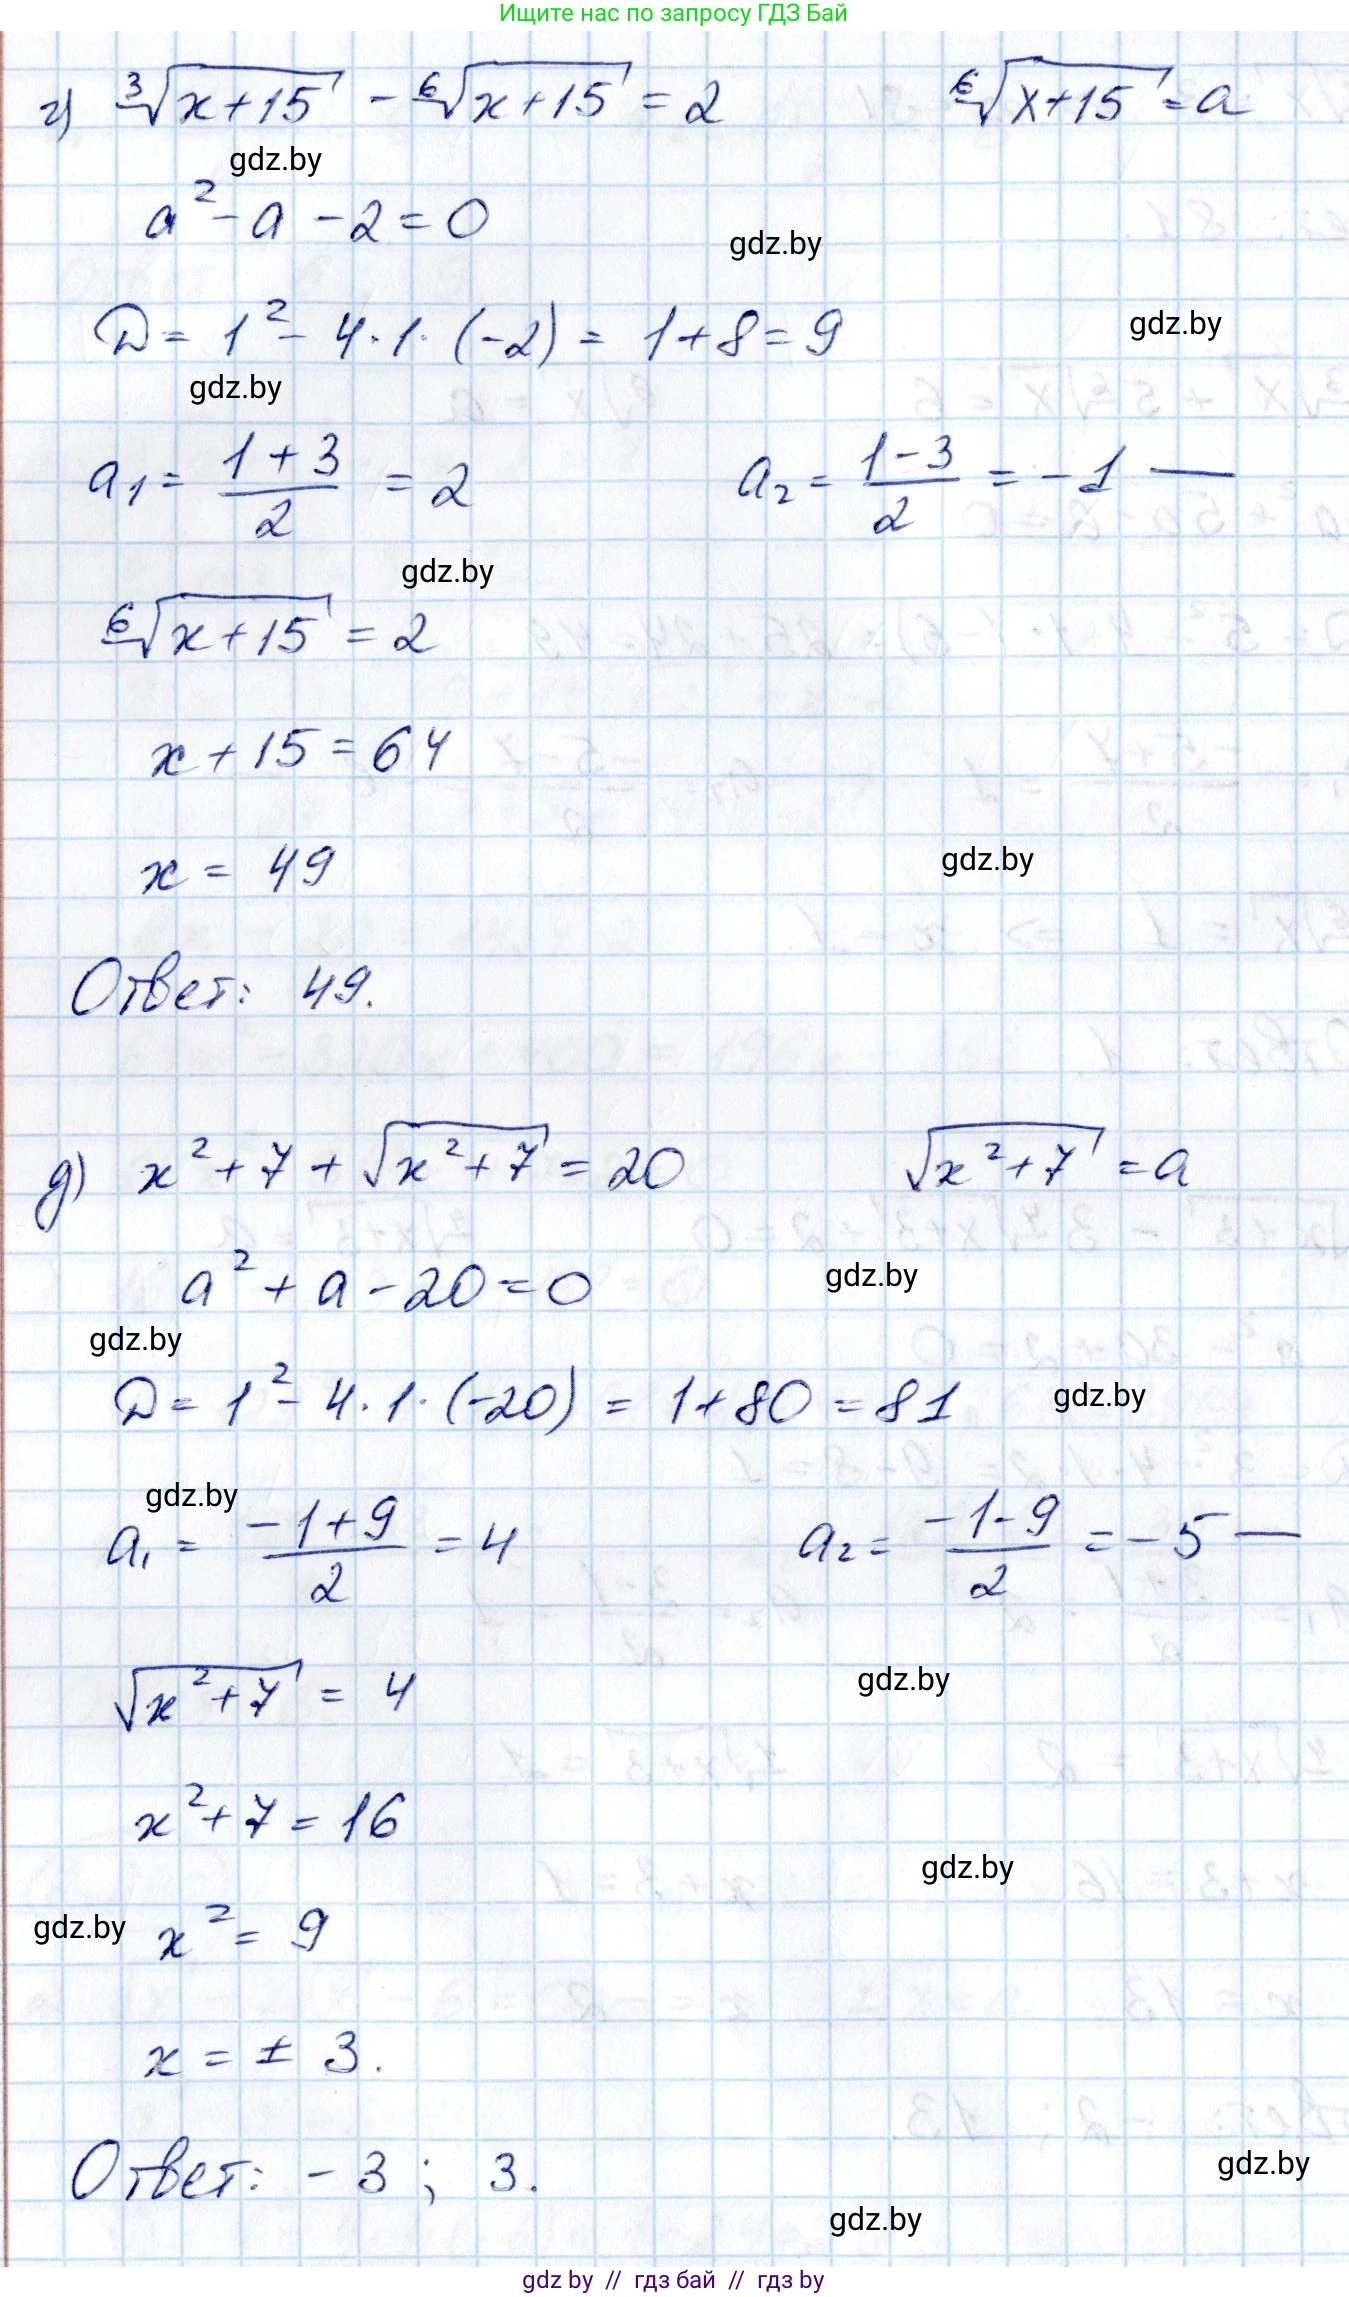 Ищите нас по запросу ГДЗ Бай
г) ∛(x+15) - ⁶√(x+15) = 2    ⁶√(x+15) = a
gdz.by
a² - a - 2 = 0
gdz.by
D = 1² - 4·1·(-2) = 1 + 8 = 9
gdz.by
gdz.by
a₁ = (1+3)/2 = 2    a₂ = (1-3)/2 = -1 —
gdz.by
⁶√(x+15) = 2
x + 15 = 64
x = 49
gdz.by
Ответ: 49.
д) x² + 7 + √(x²+7) = 20    √(x²+7) = a
a² + a - 20 = 0
gdz.by
gdz.by
D = 1² - 4·1·(-20) = 1 + 80 = 81
gdz.by
gdz.by
a₁ = (-1+9)/2 = 4    a₂ = (-1-9)/2 = -5 —
√(x²+7) = 4
gdz.by
x² + 7 = 16
gdz.by
gdz.by
x² = 9
x = ± 3.
Ответ: -3; 3.
gdz.by
gdz.by
gdz by // гдз бай // гдз by